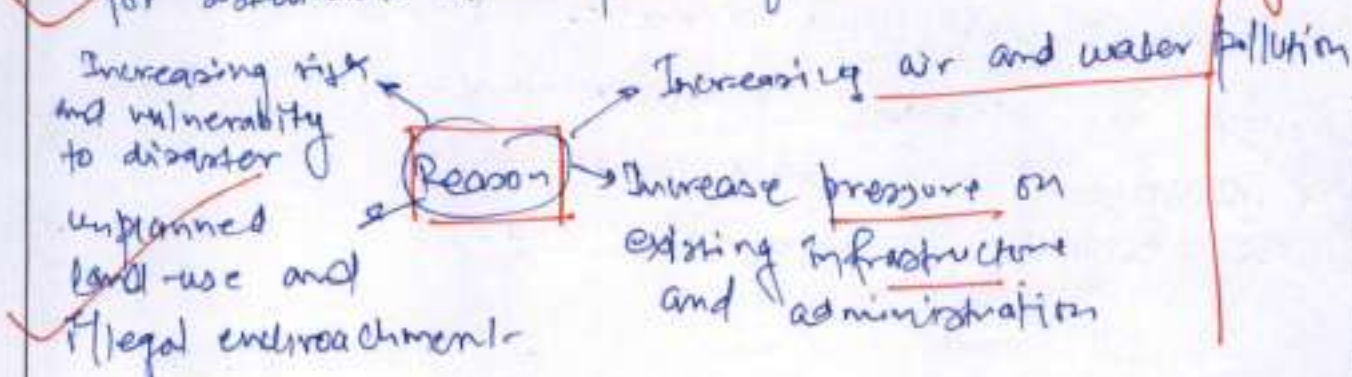 for
Increasing risk
and vulnerability
to disaster
unplanned
land-use and
illegal encroachment-
Reason
Increasing air and water pollution
Increase pressure on
existing infrastructure
and administration